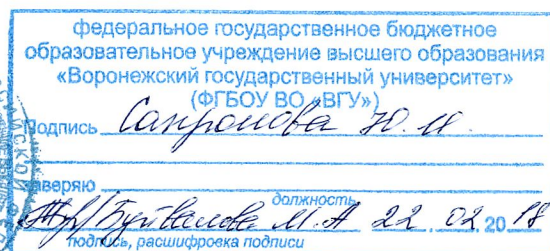 федеральное государственное бюджетное
образовательное учреждение высшего образования
«Воронежский государственный университет»
(ФГБОУ ВО «ВГУ»)
Подпись Сапронова Ю.И.
заверяю
должность
Буйвалова М.А 22.02.2018
подпись, расшифровка подписи